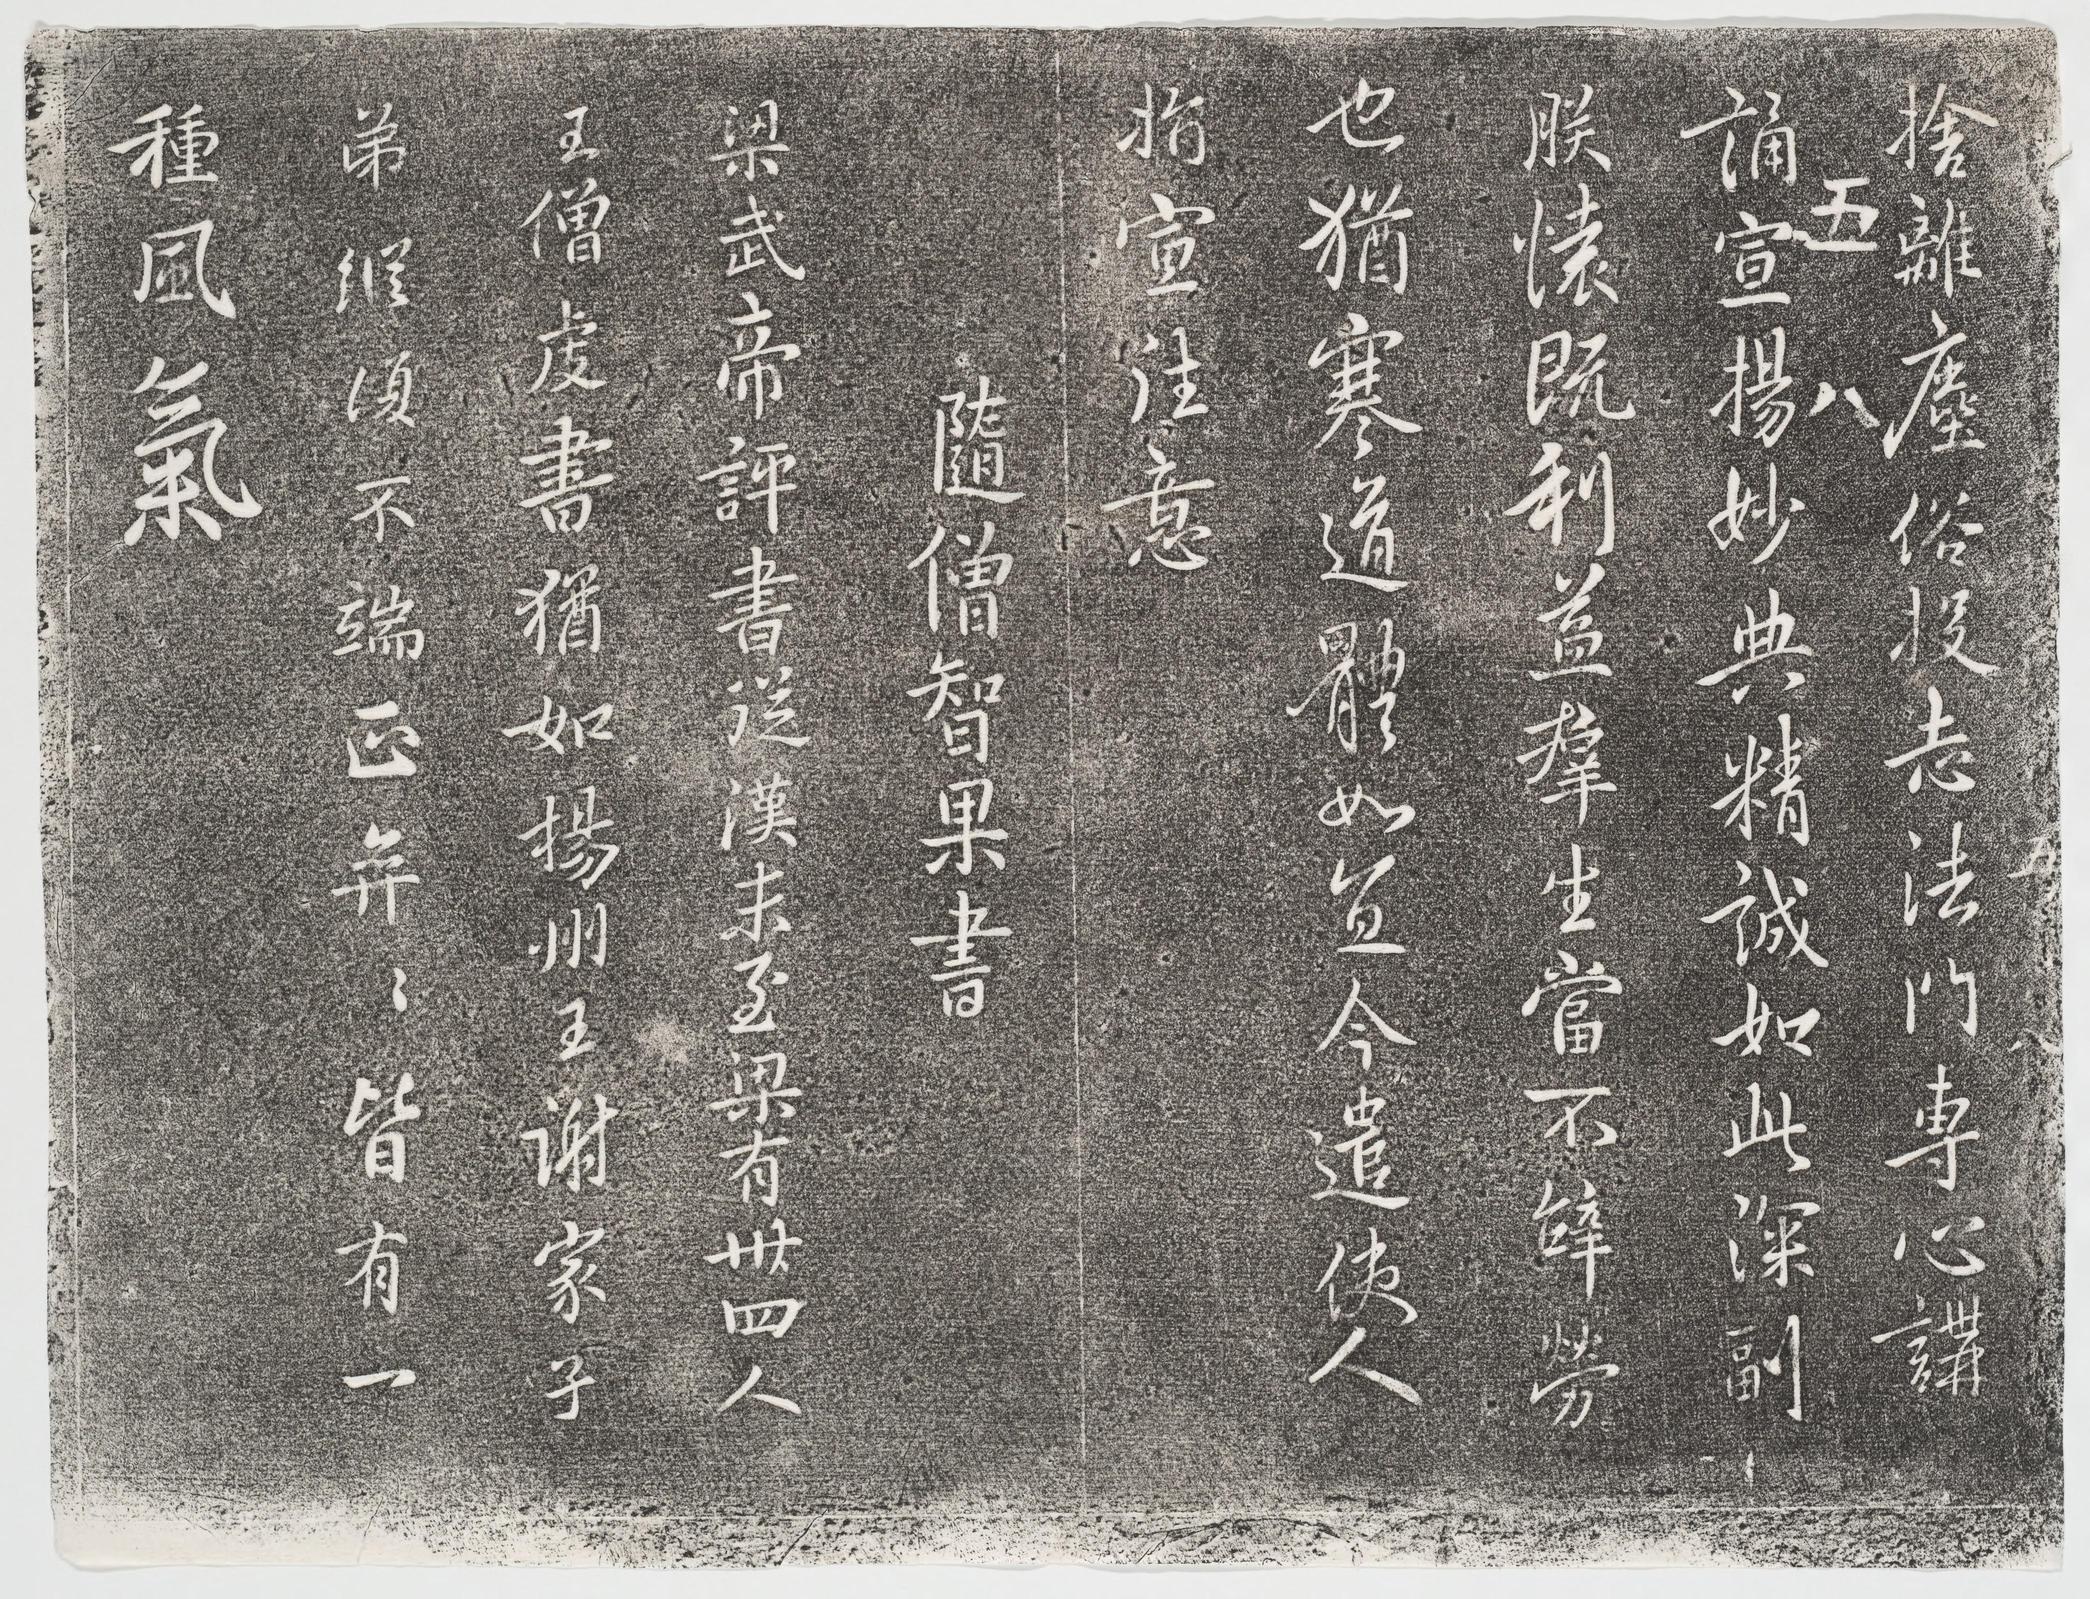 捨離塵俗投志法門專心講
五八
誦宣揚妙典精誠如此深副
朕懷既利益群生當不辭勞
也猶寒道體如宜今遣使人
指宣往意
隨僧智果書
梁武帝評書從漢末至梁有卅四人
王僧虔書猶如揚州王謝家子
弟縱復不端正弈〻皆有一
種風氣